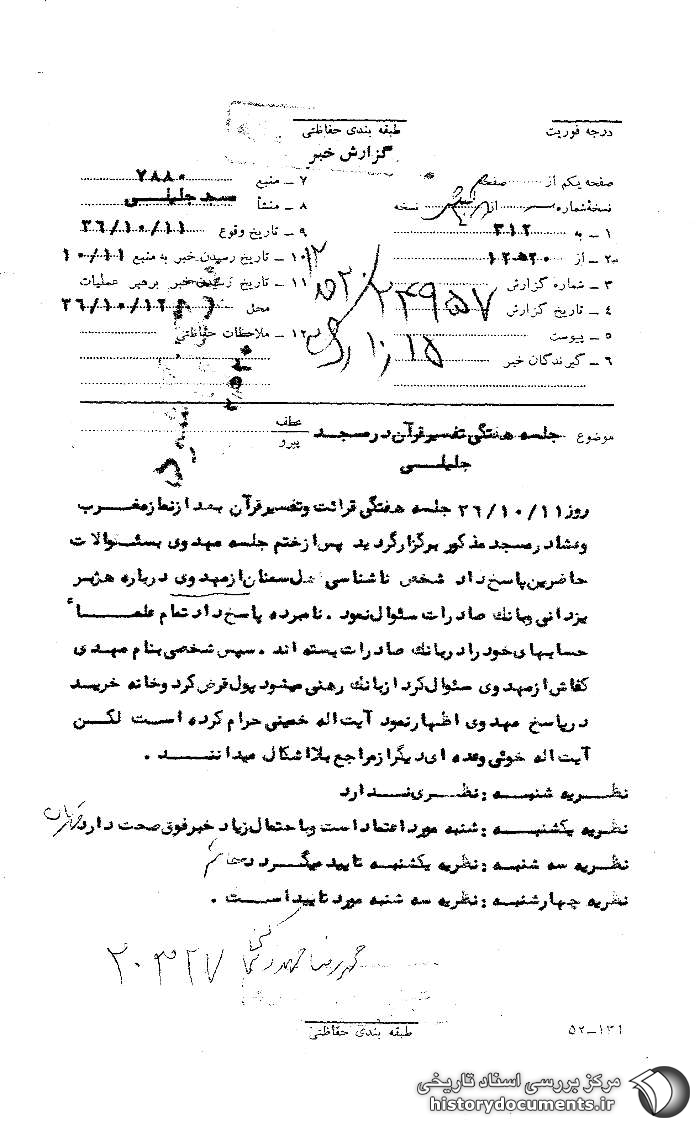 درجه فوریت
طبقه بندی حفاظتی
گزارش خبر
صفحه یکم از صفحه
نسخهٔ شماره از نسخه
۱ ـ به ۳۱۲
۲ ـ از ۱۲هـ۲۰
۳ ـ شماره گزارش ۲۴۹۵۷
۴ ـ تاریخ گزارش
۵ ـ پیوست
۶ ـ گیرندگان خبر
۷ ـ منبع ۷۸۸۰
۸ ـ منشأ مسجد جلیلی
۹ ـ تاریخ وقوع ۳۶/۱۰/۱۱
۱۰ ـ تاریخ رسیدن خبر به منبع ۱۰/۱۱
۱۱ ـ تاریخ رسیدن خبر برهبر عملیات
محل ۳۶/۱۰/۱۲
۱۲ ـ ملاحظات حفاظتی
موضوع جلسه هفتگی تفسیر قرآن در مسجد
جلیلی
عطف
پیرو
روز ۳۶/۱۰/۱۱ جلسه هفتگی قرائت و تفسیر قرآن بعد از نماز مغرب
وعشاد رمسجد مذکور برگزار گردید پس از ختم جلسه مهدوی بسئوالات
حاضرین پاسخ داد شخص ناشناسی اهل سمنان از مهدوی درباره هژبر
یزدانی وبانک صادرات سئوال نمود . نامبرده پاسخ داد تمام علماء
حسابهای خود را در بانک صادرات بسته اند . سپس شخصی بنام مهدی
کفاش از مهدوی سئوال کرد از بانک رهنی میشود پول قرض کرد و خانه خرید
در پاسخ مهدوی اظهار نمود آیت اله خمینی حرام کرده است لکن
آیت اله خوئی وعده ای دیگر از مراجع بلا اشکال میدانند .
نظریه شنبه : نظری ندارد
نظریه یکشنبه : شنبه مورد اعتماد است وبا احتمال زیاد خبر فوق صحت دارد
نظریه سه شنبه : نظریه یکشنبه تایید میگردد
نظریه چهارشنبه : نظریه سه شنبه مورد تایید است .
۲۰۳۲۷
طبقه بندی حفاظتی
۵۲–۱۳۱
مرکز بررسی اسناد تاریخی
historydocuments.ir